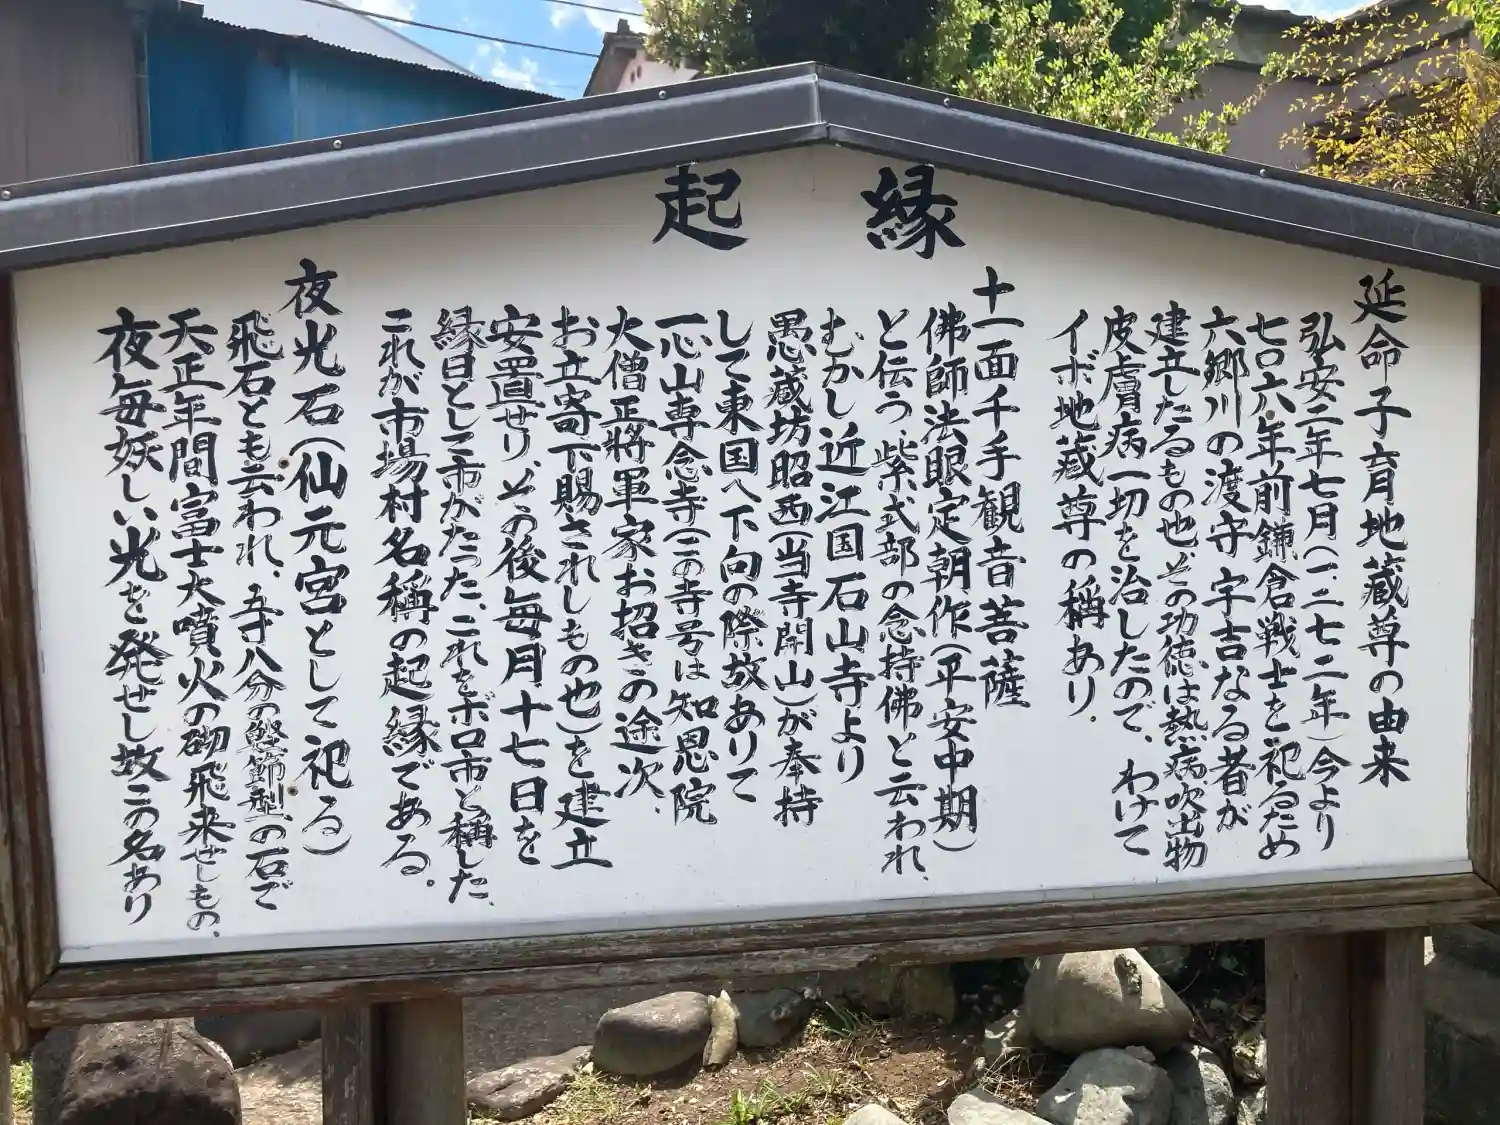 縁起
延命子育地蔵尊の由来
弘安二年七月(一二七二年)今より
七〇六年前鎌倉戦士を祀るため
六郷川の渡守宇吉なる者が
建立したるもの也、その功徳は熱病吹出物
皮膚病一切を治したので、わけて
イボ地蔵尊の稱あり.
十一面千手観音菩薩
佛師法眼定朝作(平安中期)
と伝う、紫式部の念持佛と云われ、
むかし近江国石山寺より
愚蔵坊昭西(当寺開山)が奉持
して東国へ下向の際故ありて
一心山専念寺(この寺号は知恩院
大僧正將軍家お招きの途次、
お立寄下賜されしもの也)を建立
安置せり、その後毎月十七日を
縁日として市がたった、これをボロ市と稱した、
これが市場村名稱の起縁である。
夜光石(仙元宮として祀る)
飛石とも云われ、五寸八分の鰹節型の石で
天正年間富士大噴火の砌飛来せしもの、
夜毎妖しい光を発せし故この名あり